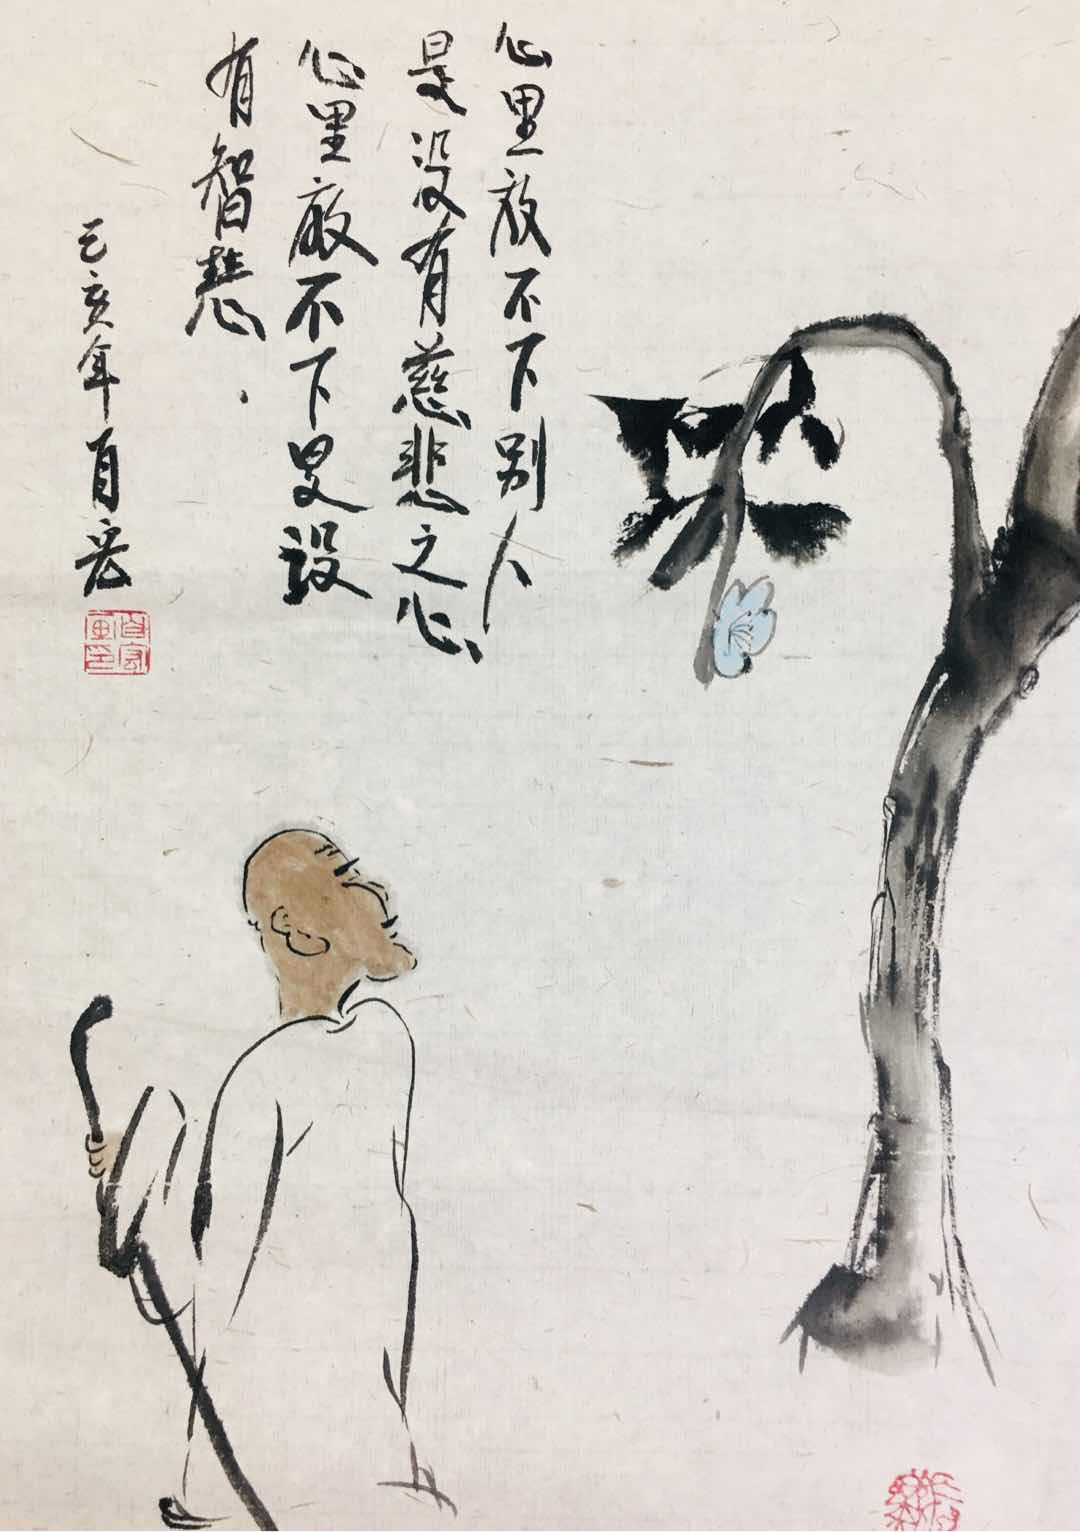 心里放不下别人
是没有慈悲之心
心里放不下是没
有智慧
己亥年自宏